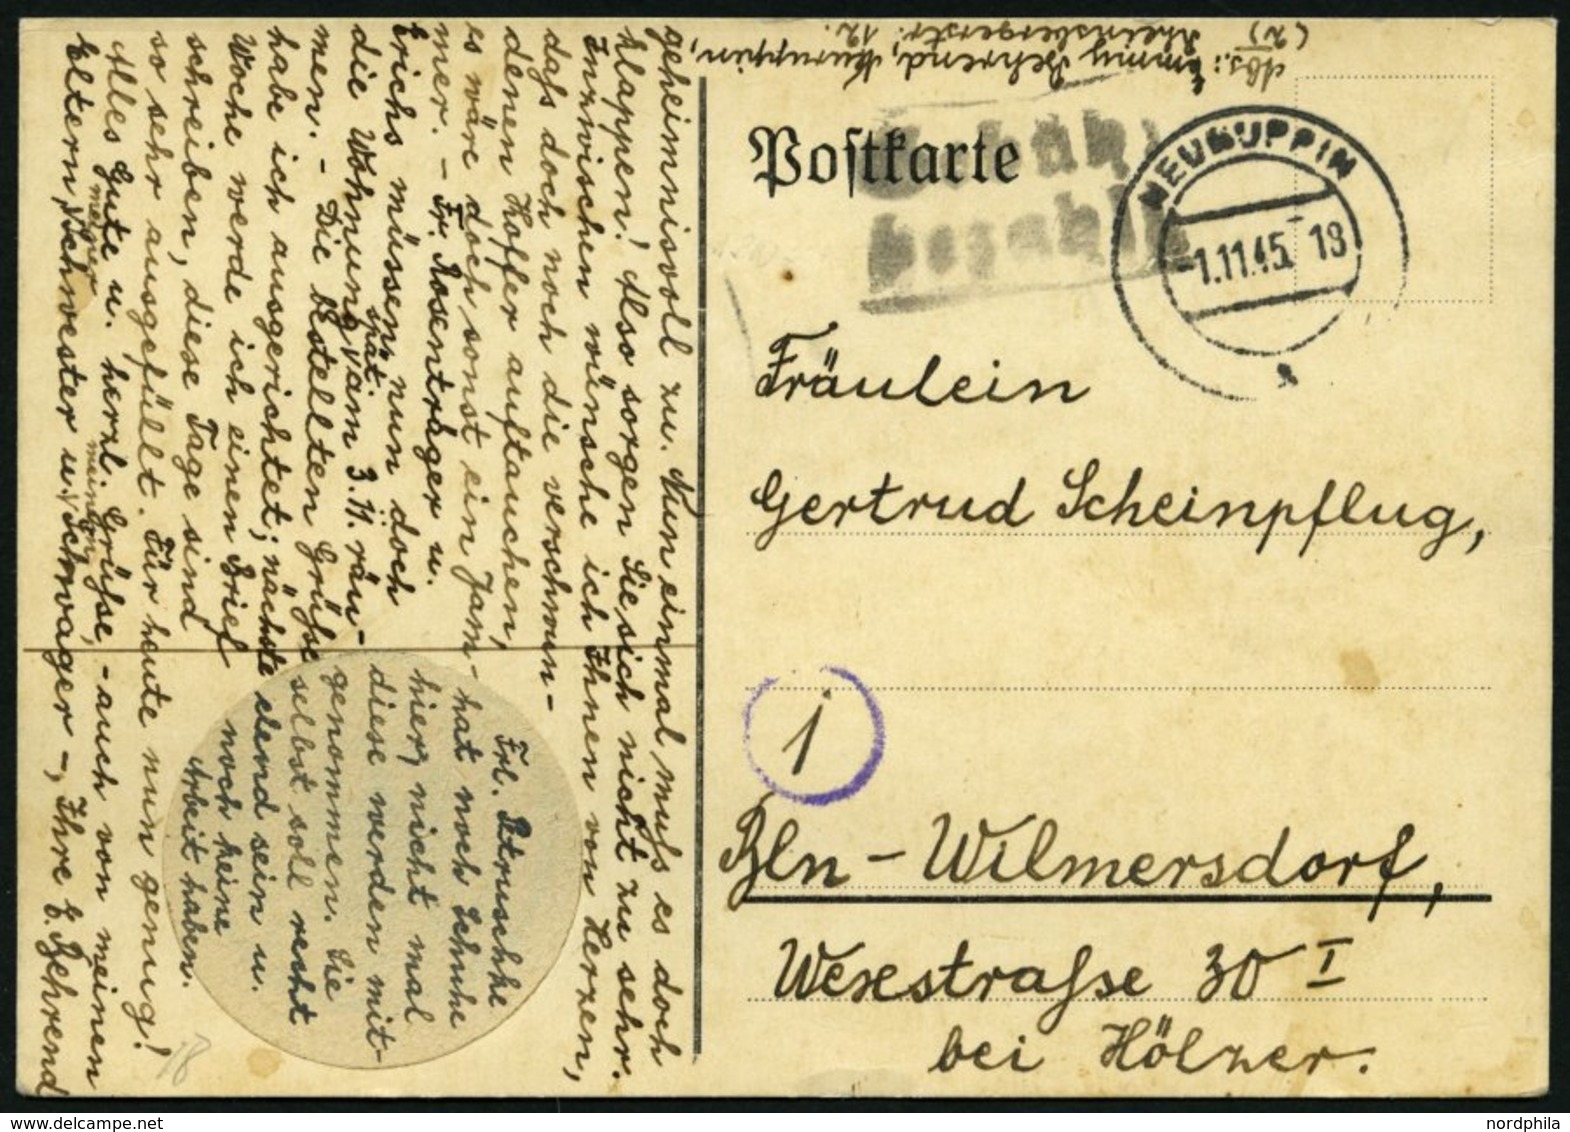 geheimnisvoll zu. Nun einmal muß es doch
klappen! Also sorgen Sie sich nicht zu sehr.
Inzwischen wünsche ich Ihnen von Herzen,
daß doch noch die verschwun-
denen Koffer auftauchen,
es wäre doch sonst ein Jam-
mer. - Fr. Rosenträger u.
Erichs müssen nun doch
die Wohnung spät. am 3.11. räu-
men. - Die bestellten Grüße
habe ich ausgerichtet; nächste
Woche werde ich einen Brief
schreiben, diese Tage sind
so sehr ausgefüllt. Für heute nun genug!
Alles Gute u. herzl. Grüße, - auch von meinen
Eltern, meiner Schwester u. Schwager -, Ihre E. Behrend
Frl. Petruschke
hat noch Schuhe
hier, nicht mal
diese werden mit-
genommen. Sie
selbst soll recht
elend sein u.
noch keine
Arbeit haben.
18
Abs.: Emmy Behrend, Neuruppin,
(2) Rheinsbergerstr. 12.
Postkarte
Gebühr
bezahlt
NEURUPPIN
-1.11.45 18
Fräulein
Gertrud Scheinpflug,
1
Bln-Wilmersdorf,
Wesestraße 30 I
bei Hölzer.
nordphila